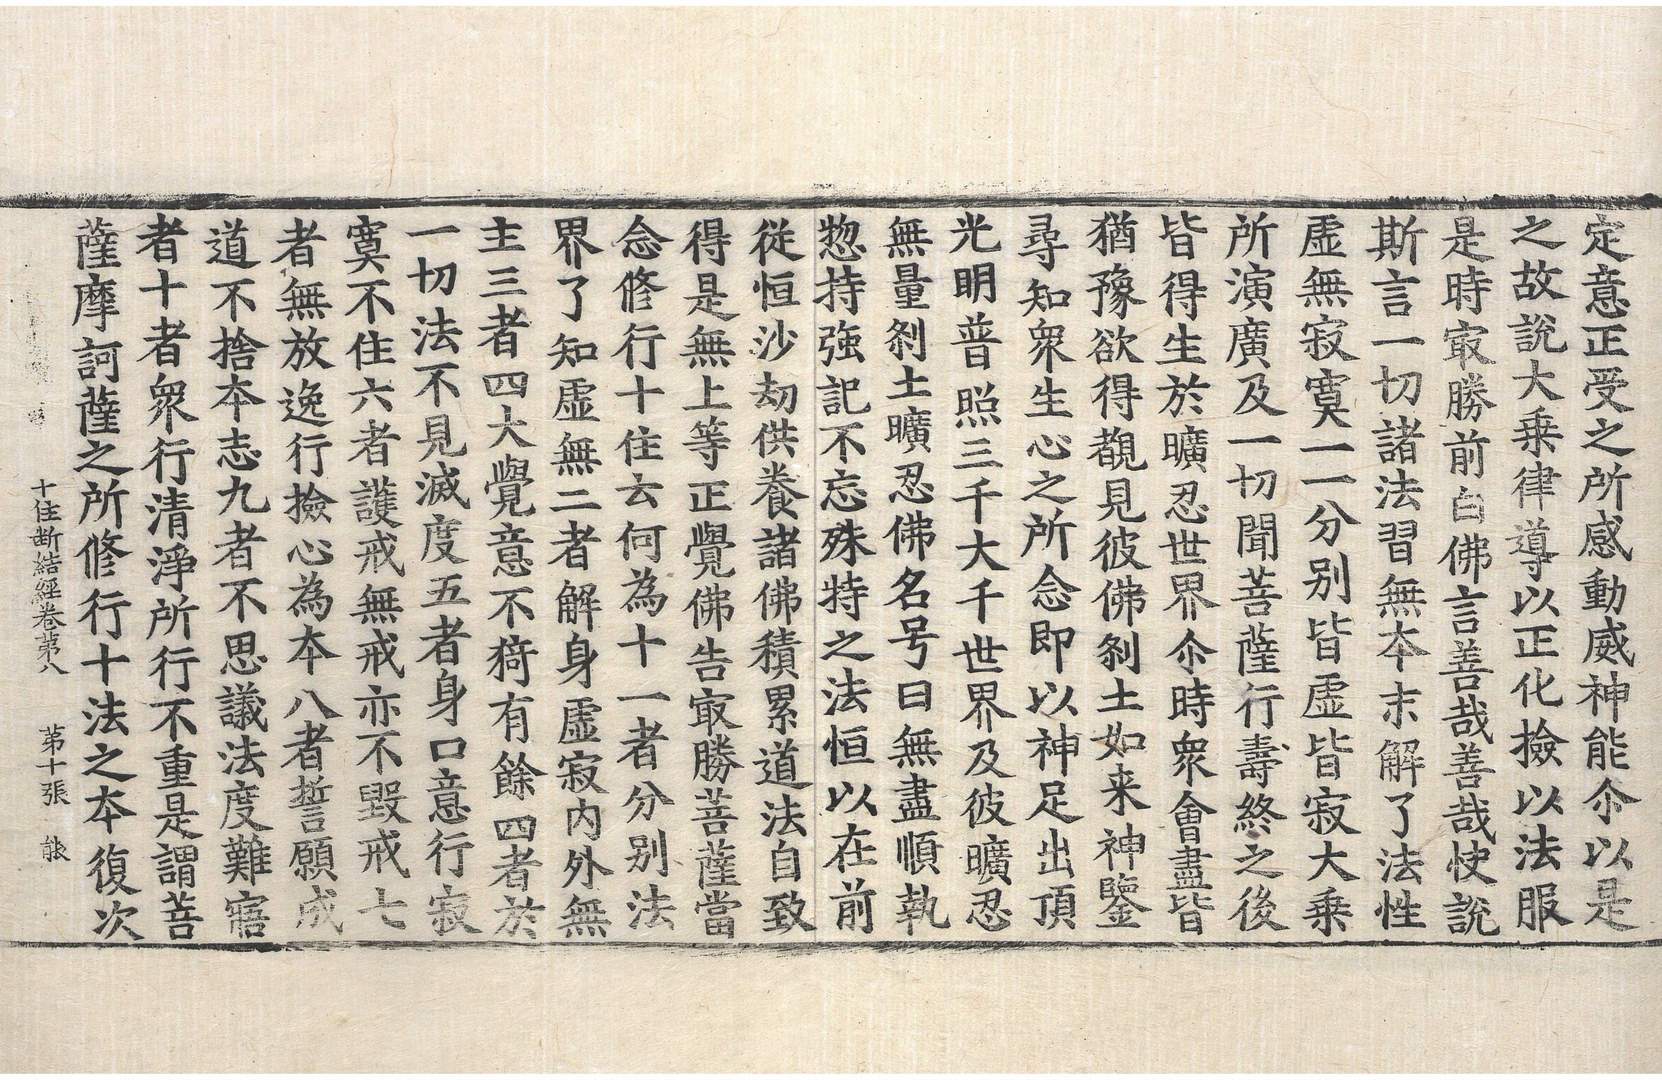 定意正受之所感動威神能尒以是
之故說大乗律導以正化撿以法服
是時㝡勝前白佛言善哉善哉快說
斯言一切諸法習無本末解了法性
虛無寂寞一一分别皆虛皆寂大乗
所演廣及一切聞菩薩行壽終之後
皆得生於曠忍世界尒時衆會盡皆
猶豫欲得覩見彼佛剎土如来神鑒
尋知衆生心之所念即以神足出頂
光明普照三千大千世界及彼曠忍
無量剎土曠忍佛名号曰無盡順執
惣持強記不忘殊特之法恒以在前
從恒沙劫供養諸佛積累道法自致
得是無上等正覺佛告㝡勝菩薩當
念修行十住云何為十一者分别法
界了知虛無二者解身虛寂内外無
主三者四大覺意不猗有餘四者於
一切法不見滅度五者身口意行寂
寞不住六者護戒無戒亦不毀戒七
者無放逸行撿心為本八者誓願成
道不捨本志九者不思議法度難寤
者十者衆行清淨所行不重是謂菩
薩摩訶薩之所修行十法之本復次
十住断結經卷第八 第十張 能